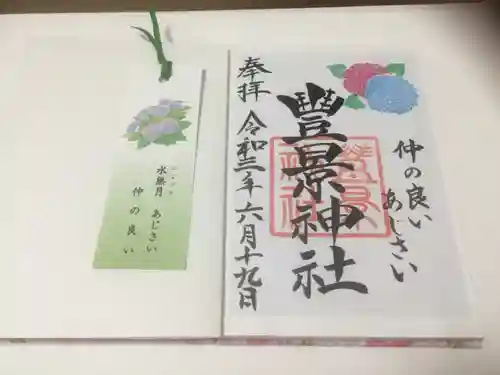 仲の良い
あじさい
豐景神社
奉拝
令和三年六月十九日
水無月
あじさい
仲の良い